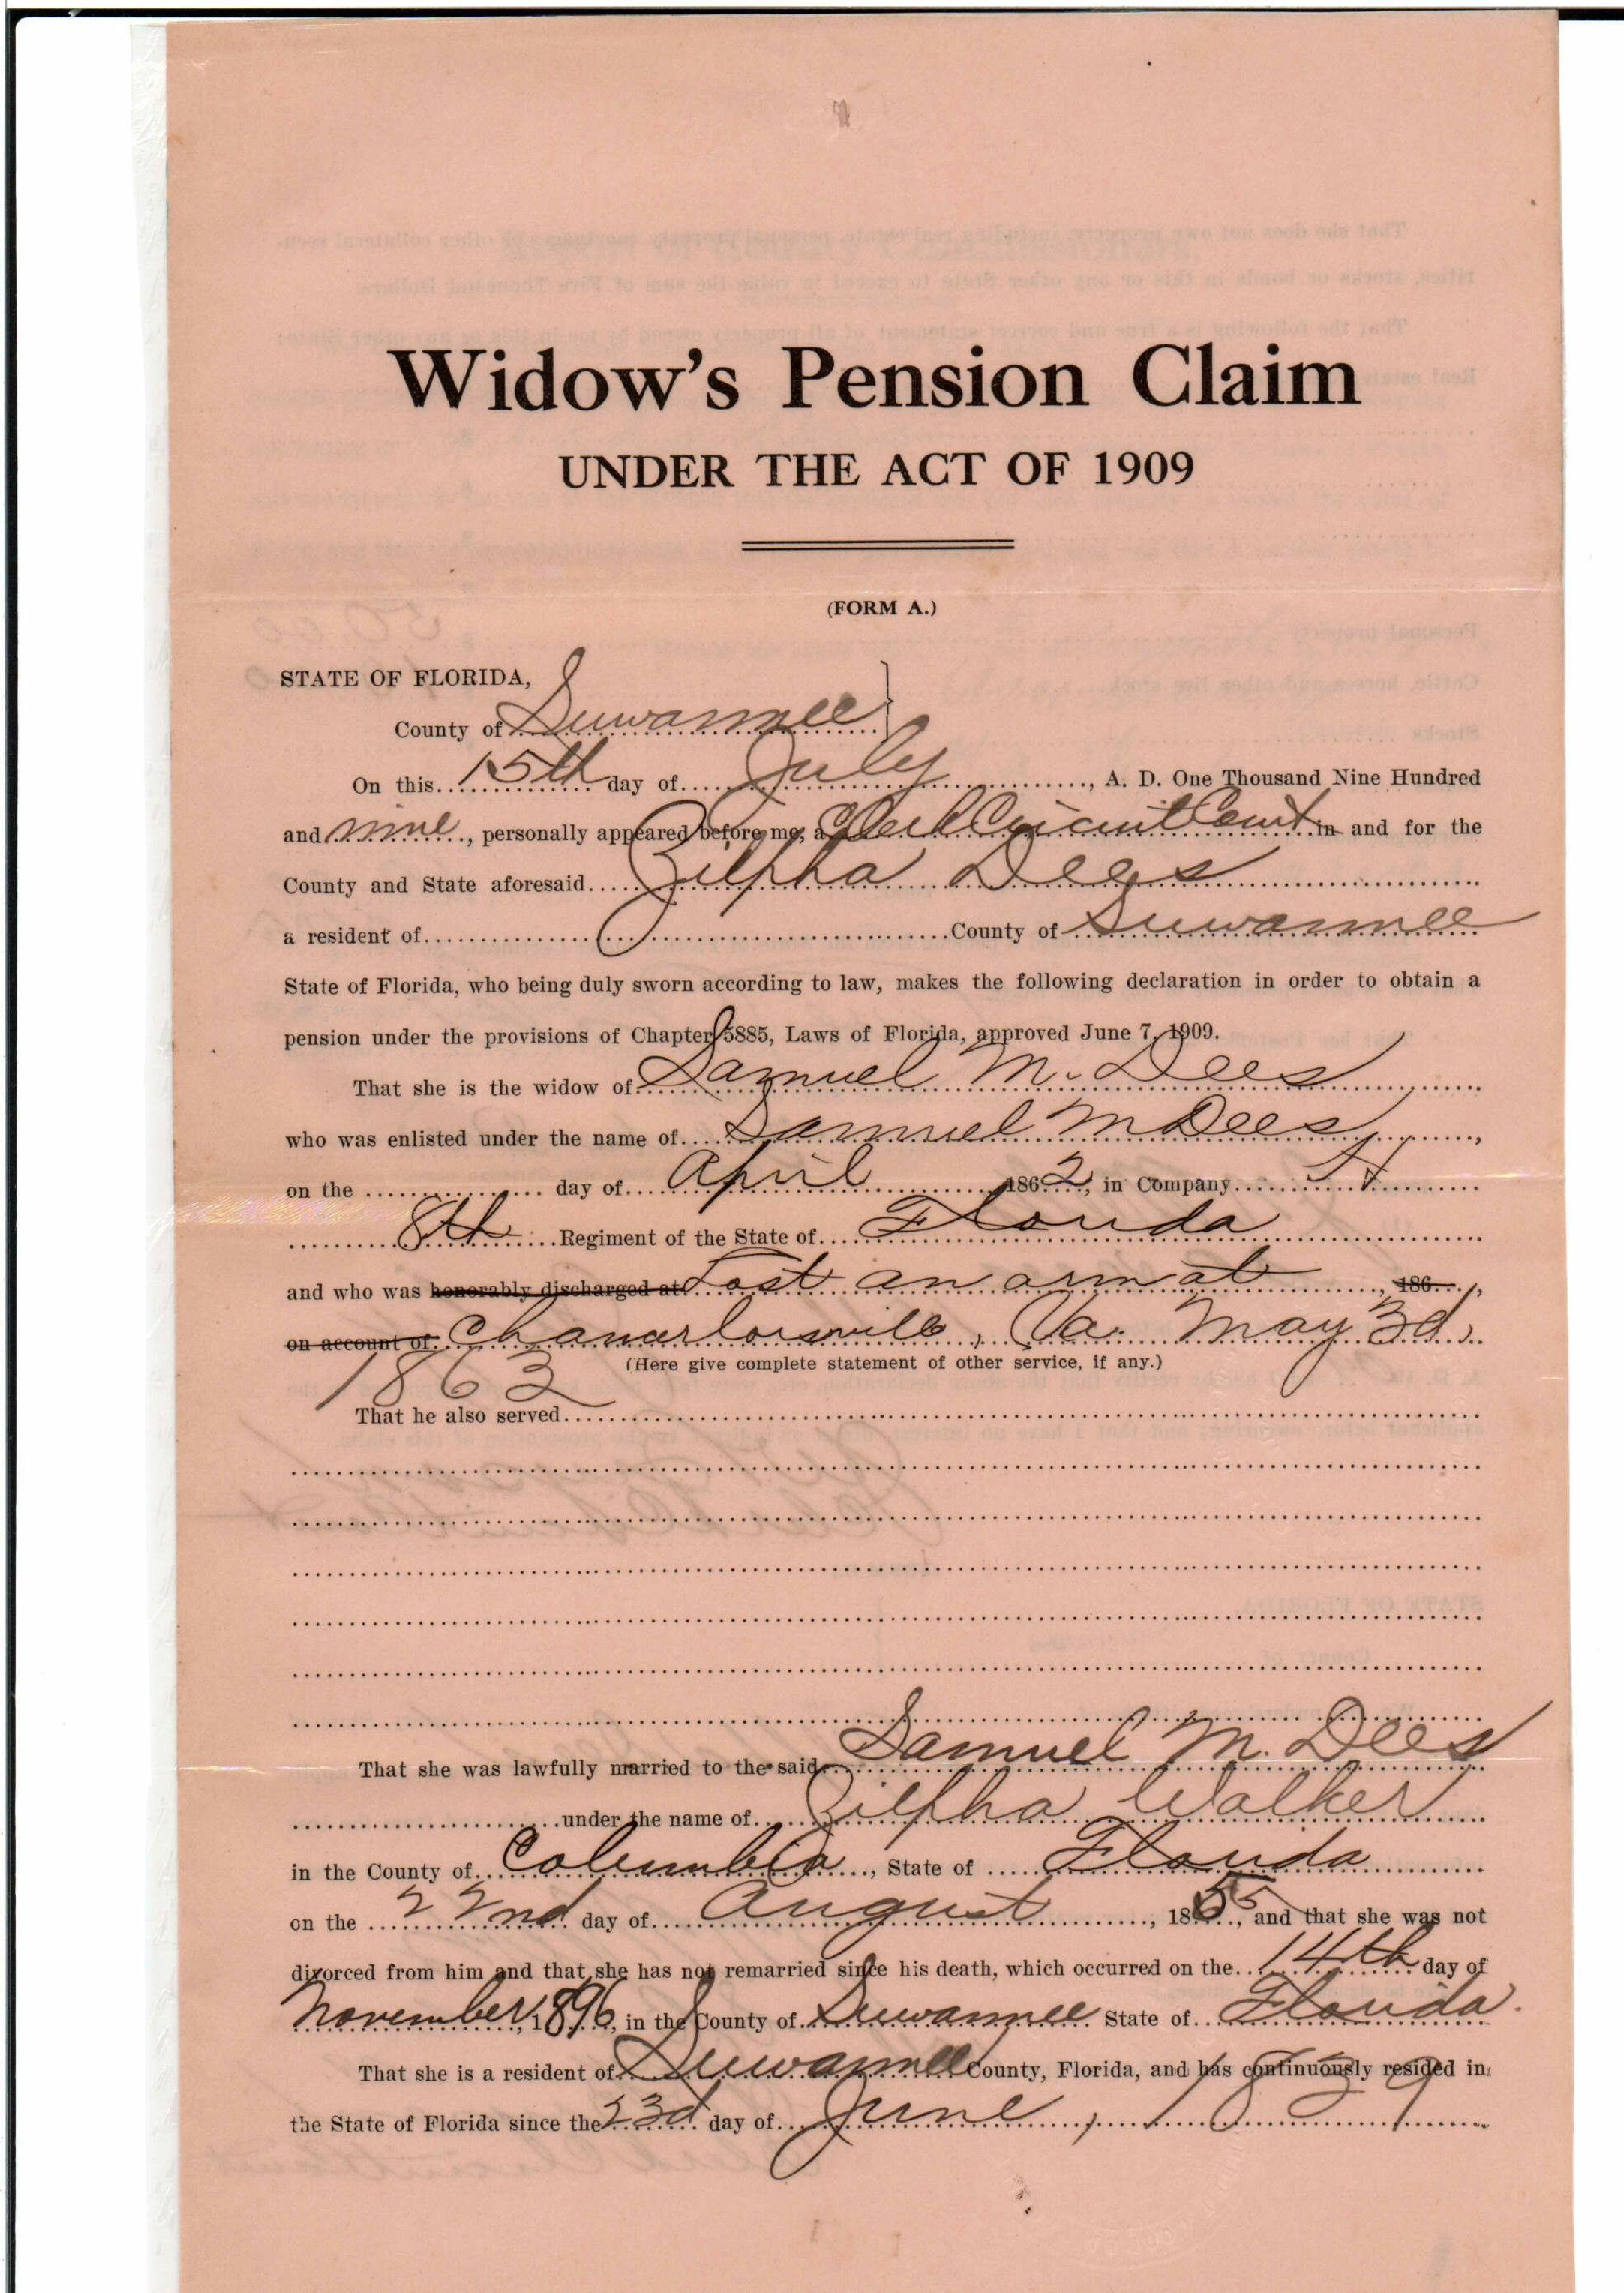 Widow's Pension Claim
UNDER THE ACT OF 1909
(FORM A.)
STATE OF FLORIDA,
County of Suwannee
On this 15th day of July, A. D. One Thousand Nine Hundred
and nine, personally appeared before me, a Clerk Circuit Court in and for the
County and State aforesaid Zilpha Dees
a resident of County of Suwannee
State of Florida, who being duly sworn according to law, makes the following declaration in order to obtain a
pension under the provisions of Chapter 5885, Laws of Florida, approved June 7, 1909.
That she is the widow of Samuel M. Dees
who was enlisted under the name of Samuel M Dees,
on the day of April 1862, in Company H
8th Regiment of the State of Florida
and who was honorably discharged at Lost an arm at, 186 ,
on account of Chancerlorsville, Va. May 3d,
1863 (Here give complete statement of other service, if any.)
That he also served
That she was lawfully married to the said Samuel M. Dees
under the name of Zilpha Walker
in the County of Columbia, State of Florida
on the 22nd day of August, 1855, and that she was not
divorced from him and that she has not remarried since his death, which occurred on the 14th day of
November, 1896, in the County of Suwannee State of Florida.
That she is a resident of Suwannee County, Florida, and has continuously resided in
the State of Florida since the 23d day of June, 1839